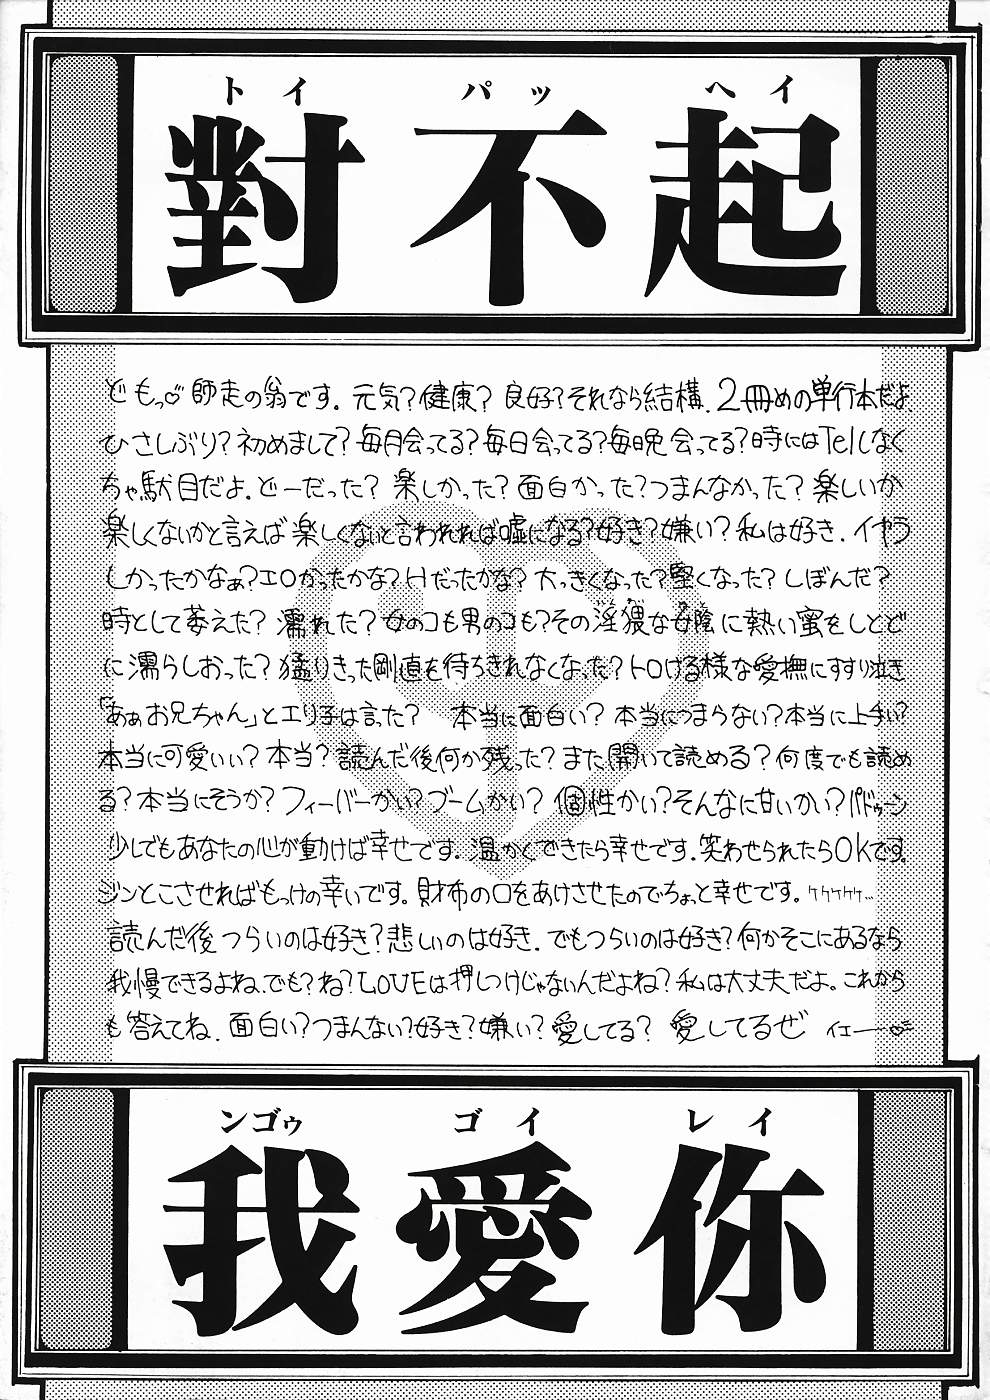 トイ パッ ヘイ
對不起
どもっ♡師走の翁です。元気?健康?良好?それなら結構.2冊めの単行本だよ.
ひさしぶり?初めまして?毎月会ってる?毎日会ってる?毎晩会ってる?時にはTelしなく
ちゃ駄目だよ.どーだった?楽しかった?面白かった?つまんなかった?楽しいか
楽しくないかと言えば楽しくないと言われれば嘘になる?好き?嫌い?私は好き.イヤラ
しかったかなぁ?エロかったかな?Hだったかな?大っきくなった?堅くなった?しぼんだ?
時として萎えた?濡れた?女のコも男のコも?その淫猥な女陰に熱い蜜をしとど
に濡らしおった?猛りきった剛直を待ちきれなくなった?トロける様な愛撫にすすり泣き
「あぁお兄ちゃん」とエリ子は言った? 本当に面白い?本当につまらない?本当に上手い?
本当に可愛いい?本当?読んだ後何か残った?また開いて読める?何度でも読め
る?本当にそうか?フィーバーかい?ブームかい?個性かい?そんなに甘いかい?パドゥーン
少しでもあなたの心が動けば幸せです.温かくできたら幸せです.笑わせられたらOKです.
ジンとこさせればもっけの幸いです。財布の口をあけさせたのでちょっと幸せです。ケケケケケ…
読んだ後つらいのは好き?悲しいのは好き.でもつらいのは好き?何かそこにあるなら
我慢できるよね、でも?ね?LOVEは押しつけじゃないんだよね?私は大丈夫だよ。これから
も答えてね.面白い?つまんない?好き?嫌い?愛してる?愛してるぜ イエー♡
ンゴゥ ゴイ レイ
我愛你